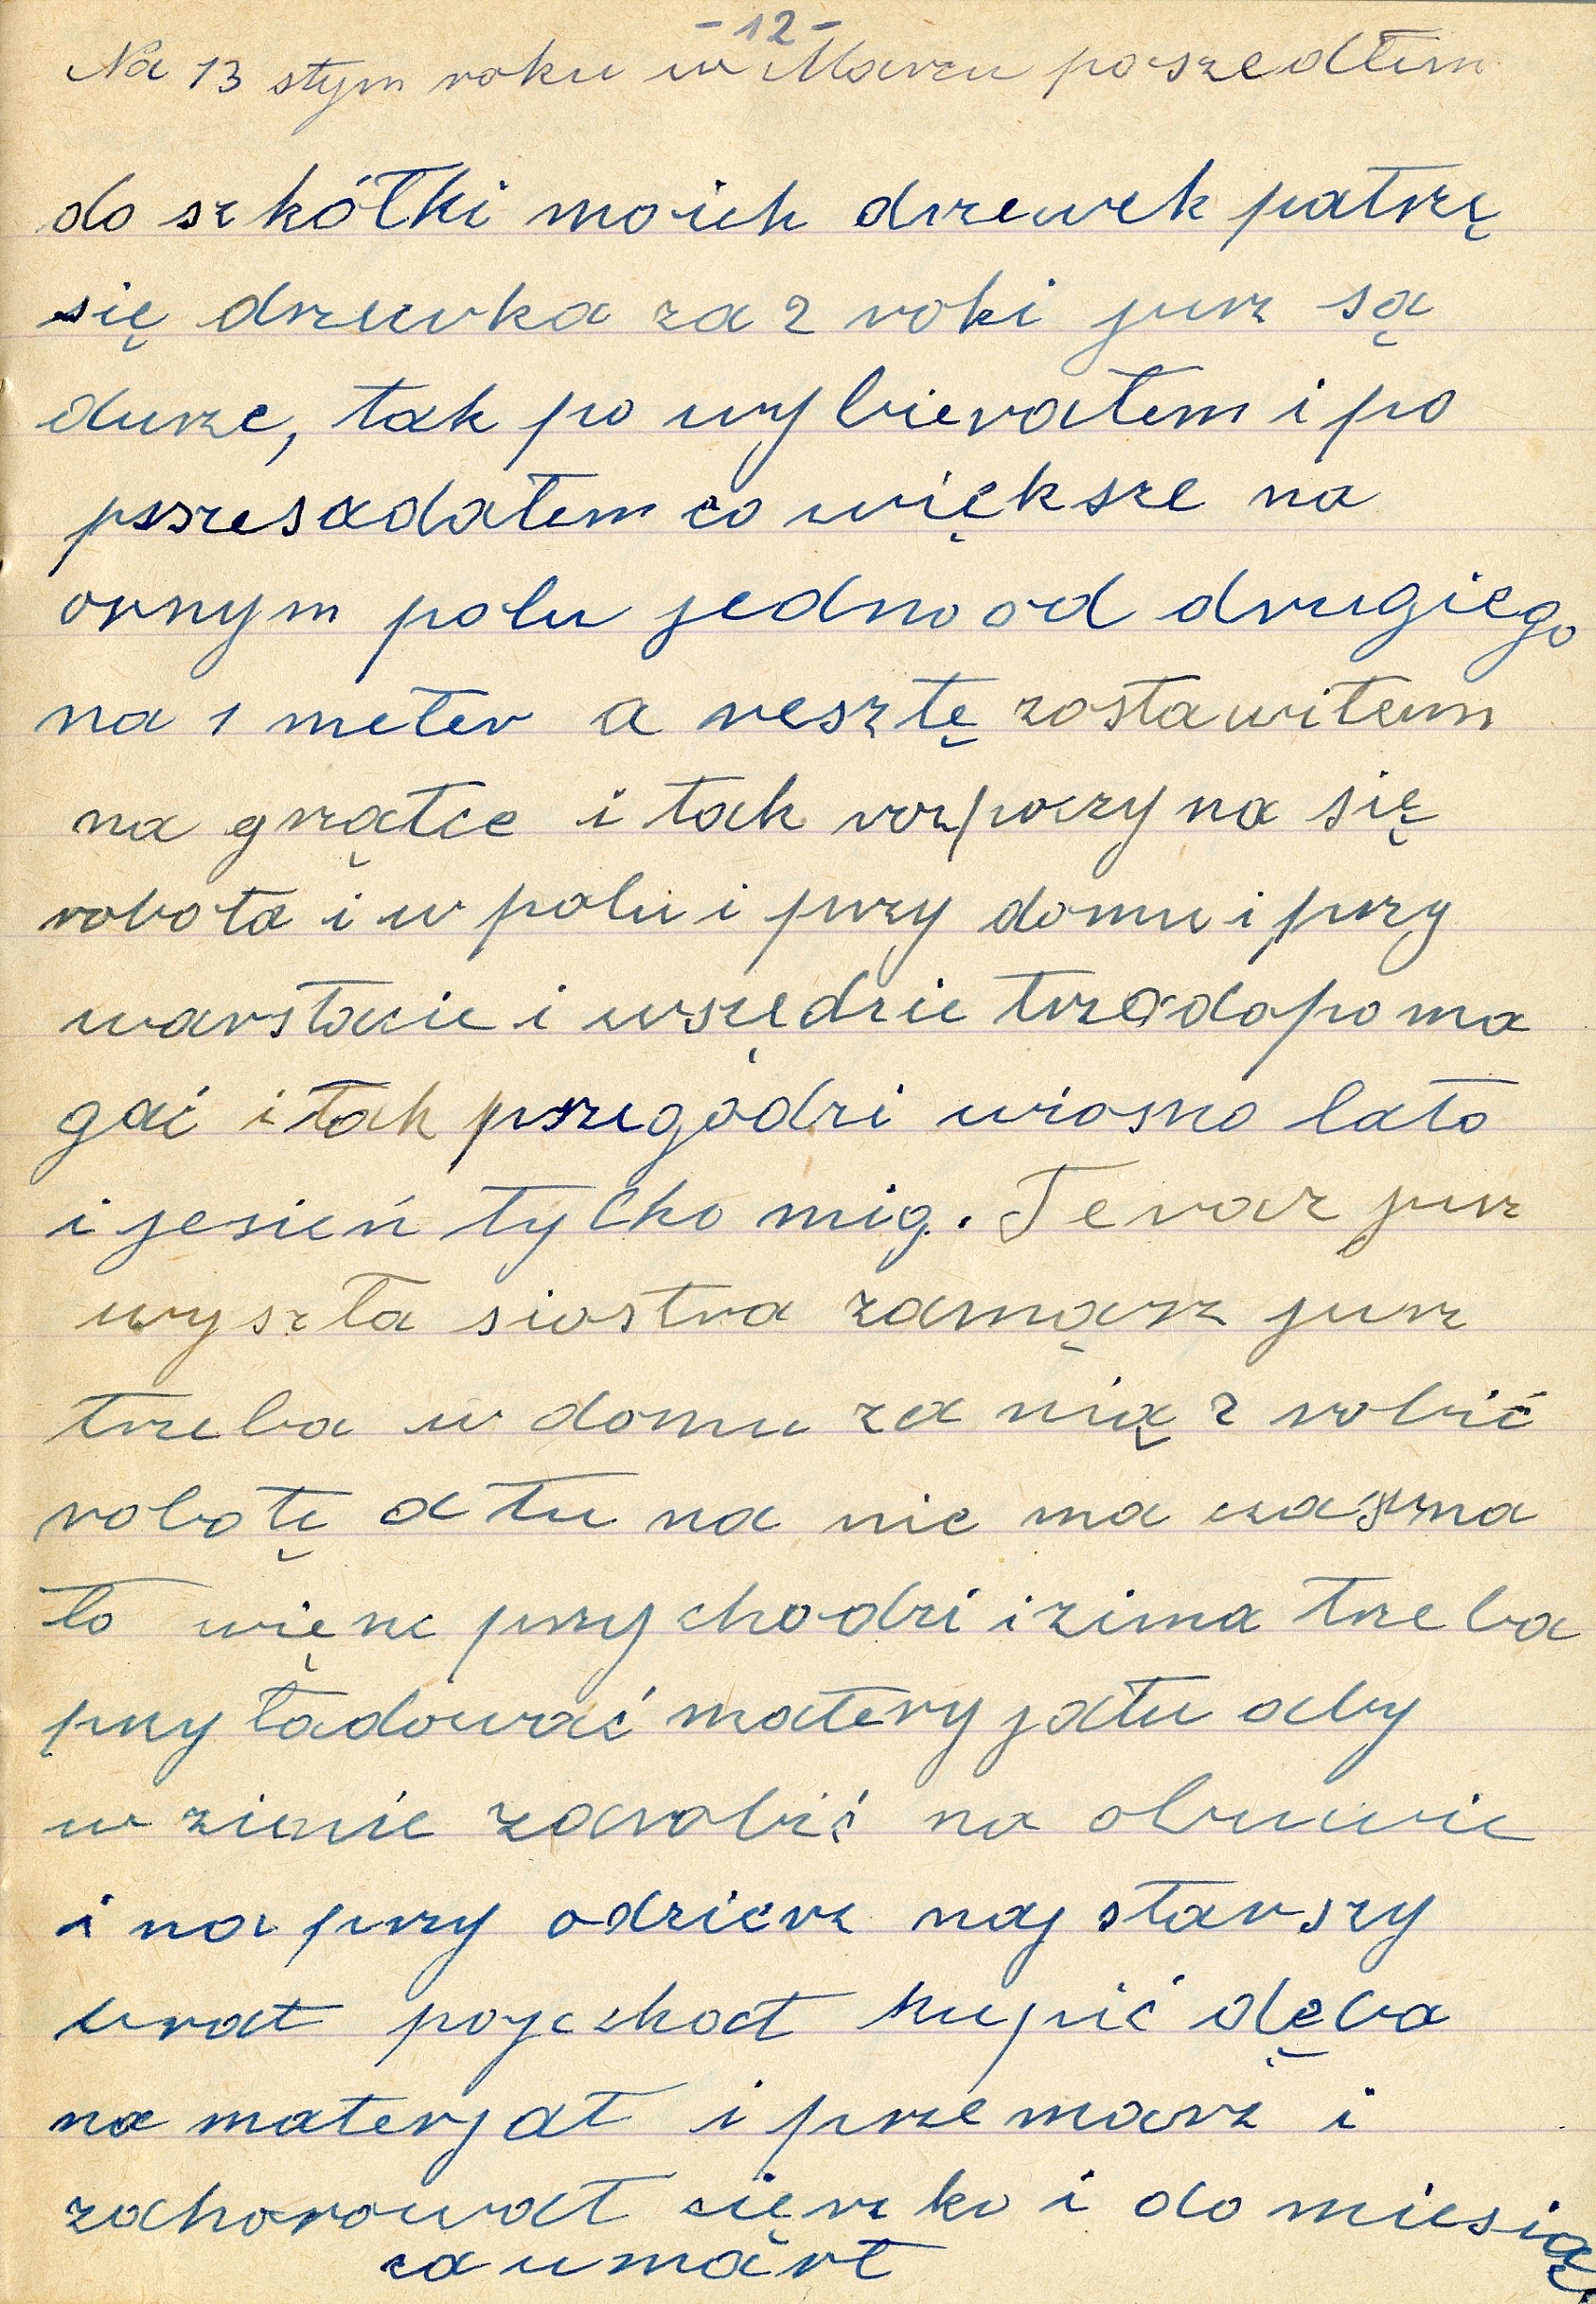 -12-
Na 13 stym roku w Marcu poszedłem
do szkółki moich drzewek patrzę
się drzewka za 2 roki jurz są
durze, tak po wybierałem i po
pszesadałem co większe na
ornym polu jedno od drugiego
na 1 meter a resztę zostawiłem
na grzątce i tak rozpoczyna się
robota i w polu i przy domu i przy
warstacie i wszędzie trza dopoma
gać i tak pszegodzi wiosno lato
i jesień tylko mig. Teraz jurz
wyszła siostra zamąrz jurz
trzeba w domu za nią zrobić
robotę a tu na nic ma czaszna
to więnc przychodzi i zima trzeba
przyładować materyjału aby
w zimie zarobić na obuwie
i na przy odzierz naj starszy
brat pojechał kupić dęba
na materjał i przemarz i
zachorował cięrzko i do miesią
ca umarł